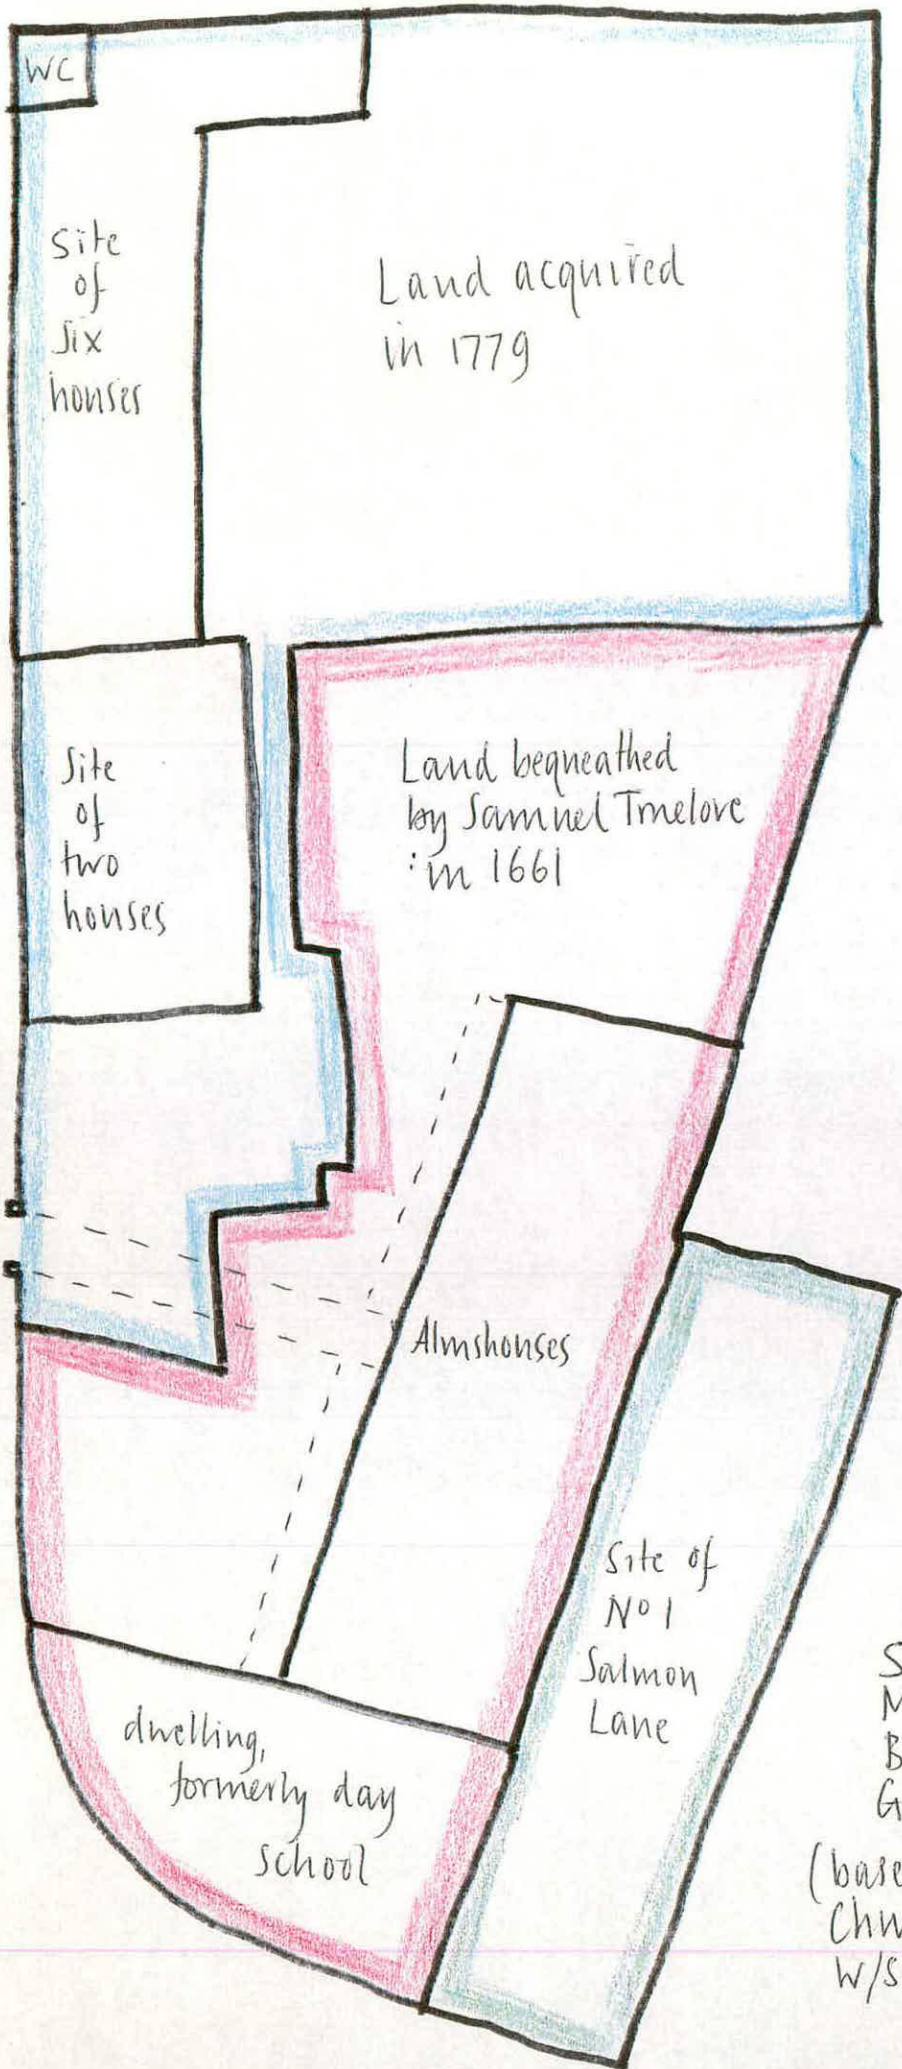 WC
Site
of
six
houses
Land acquired
in 1779
Site
of
two
houses
Land bequeathed
by Samuel Truelove
in 1661
Almshouses
Site of
No 1
Salmon
Lane
dwelling,
formerly day
school
S
M
B
G
(base
Chu
W/S